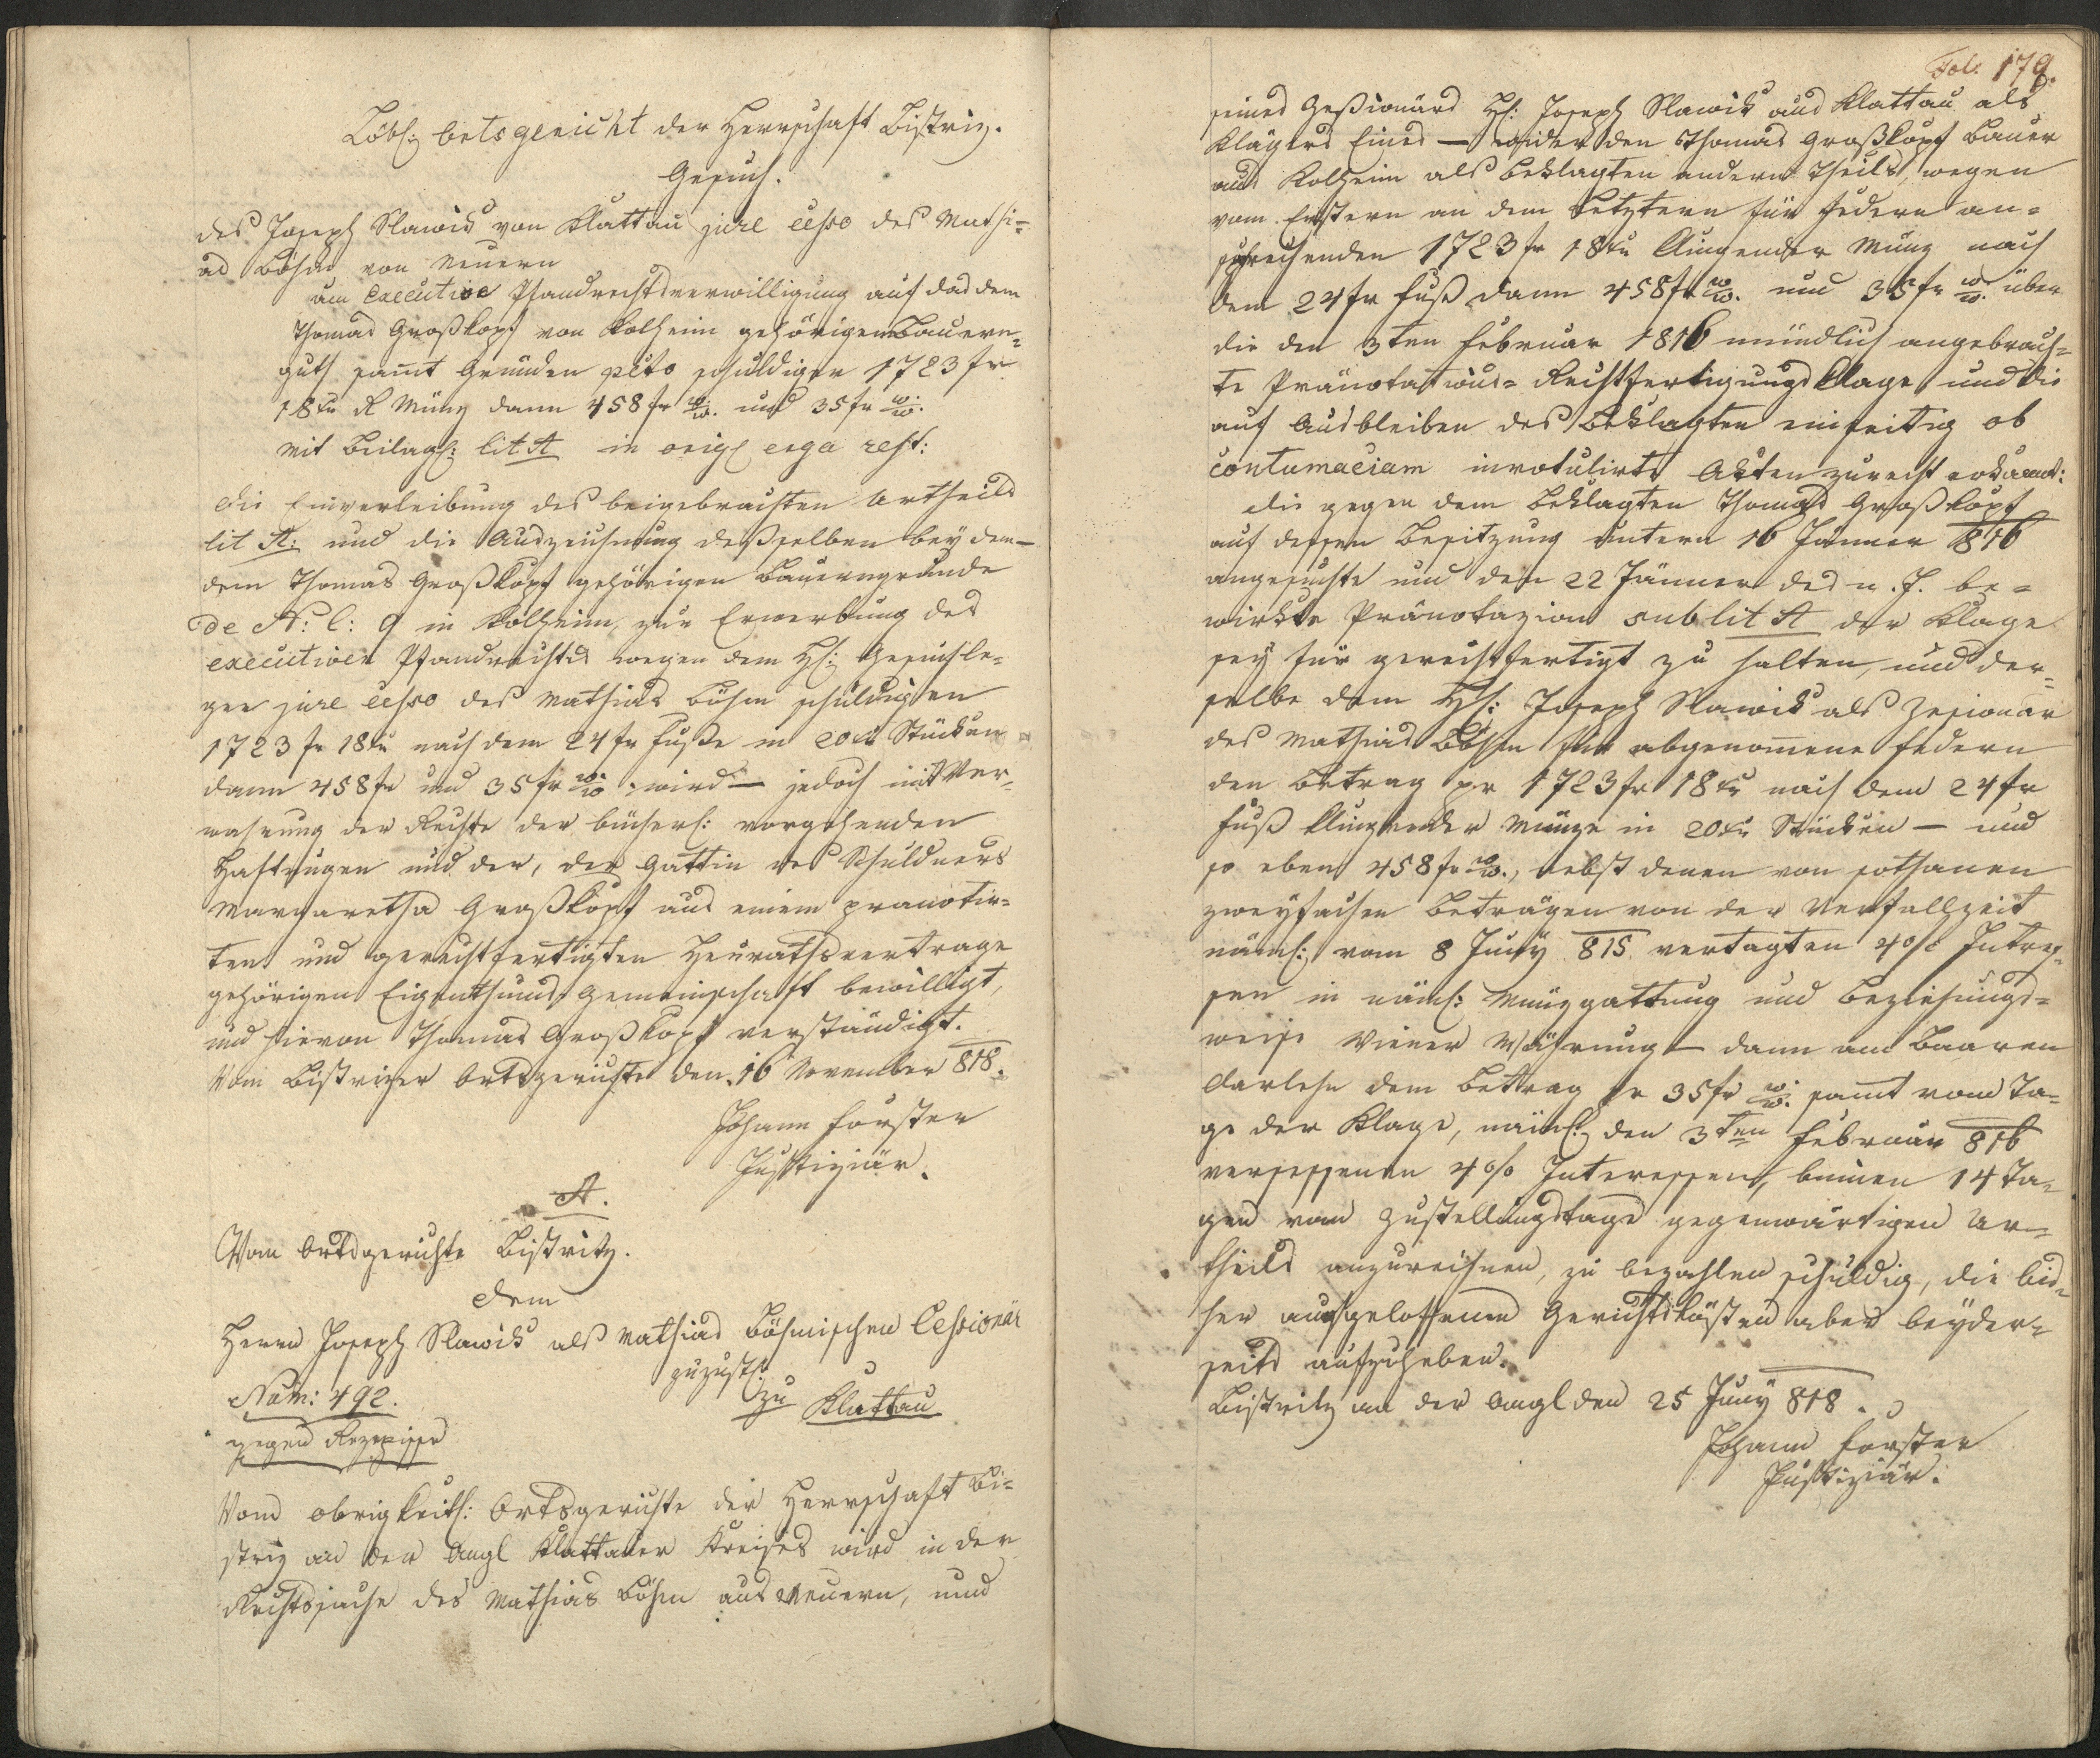 Löbl: Ortsgericht der Herrschaft Bistriz.
Gesuch.
des Joseph Slawik von Klattau jure cesso des Mathi=
as Böhm von Neuern
um executive Pfandrechtsverwilligung auf das dem
Thomas Großkopf von Kolheim gehörigen Bauern=
guth samt Gründen pcto schuldiger 1723 fr
18 xr K Münz dann 458 fr W.W. und 35 fr W.W.
Mit Beilag: lit A in orig: erga rest:
Die Einverleibung des beigebrachten Urtheils
lit A: und die Auszeichnung deßselben bey dem—
dem Thomas Großkopf gehörigen Bauerngrunde
de N: C: 9 in Kolheim, zur Erwerbung des
executiven Pfandrechts wegen dem H: Gesuchle=
ger jure cesso des Mathias Böhm schuldigen
1723 fr 18 xr nach dem 24 fr Fuße in 20 xr Stücken
dann 458 fr und 35 fr W.W. wird — jedoch mit Ver=
wahrung der Rechte der bücherl: vorgehenden
Haftungen und der, der Gattin des Schuldners
Margaretha Großkopf aus einem pränotir=
ten und gerechtfertigten Heurathsvertrage
gehörigen Eigenthums Gemeinschaft bewilligt,
und hievon Thomas Großkopf verständigt.
Vom Bistrizer Ortsgerichte den 16 November 818.
Johann Forster
Justiziär.
A.
Vom Ortsgerichte Bistritz.
Dem
Herrn Joseph Slawik als Mathias Böhmischen Cessionär
zuzust:
Num: 492. zu Klattau
gegen Rezepisse
Vom obrigkeitl: Ortsgerichte der Herrschaft Bi=
striz an der Angl Klattauer Kreises wird in der
Rechtssache des Mathias Böhm aus Neuern, nun
Fol. 179.
seines Zeßionärs H: Joseph Slawik aus Klattau als
Klägers Eines — wider den Thomas Großkopf Bauer
aus Kolheim als Beklagten andern Theils, wegen
vom Erstern an dem Letztern für Federn an=
sprechenden 1723 fr 18 xr klingender Münz nach
dem 24 fr Fuß dann 458 fr W.W. und 35 fr W.W. über
die den 3ten Februar 1816 mündlich angebrach=
te Pränotations= Rechtfertigungs Klage, und die
auf Ausbleiben des Beklagten einseitig ob
contumaciam inrotulirte Akten zurecht erkannt:
Die gegen dem Beklagten Thomas Großkopf
auf dessen Besitzung unterm 16 Jänner 816
angesuchte und den 22 Jänner des n. J. be=
wirkte Pränotazion sub lit A der Klage
sey für gerechtfertigt zu halten, und der=
selbe dem H: Joseph Slawik als Zesionär
des Mathias Böhm für abgenomene Federn
den Betrag pr 1723 fr 18 xr nach dem 24 fr
Fuß klingender Münze in 20 xr Stücken — und
so eben 458 fr W.W., nebst denen von sothanen
zweyfachen Beträgen von der Verfallzeit
näml: vom 8 Juny 815 vertagten 4% Intres=
sen in näml: Münzgattung und beziehungs=
weise Wiener Währung — dann am Baaren
Darlehn dem Betrag pr 35 fr W.W. samt vom Ta=
ge der Klage, näml: den 3ten Februar 816
versessenen 4% Interessen, binnen 14 Ta=
gen vom Zustellungstage gegenwärtigen Ur=
theils anzurechnen, zu bezahlen schuldig, die bis=
her aufgeloffenen Gerichtskösten aber beyder=
seits aufzuheben.
Bistritz an der Angl den 25 Juny 818.
Johann Forster
Justiziär.